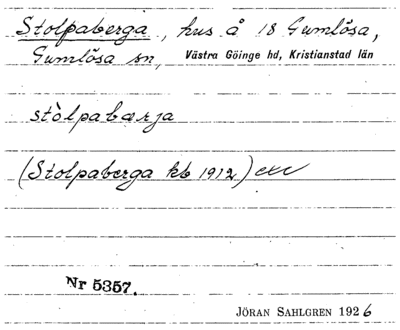 Stolpaberga, hus å 18 Gumlösa,
Gumlösa sn, Västra Göinge hd, Kristianstad län
stòlpabærja
(Stolpaberga kb 1912)
Nr 5357.
JÖRAN SAHLGREN 1926